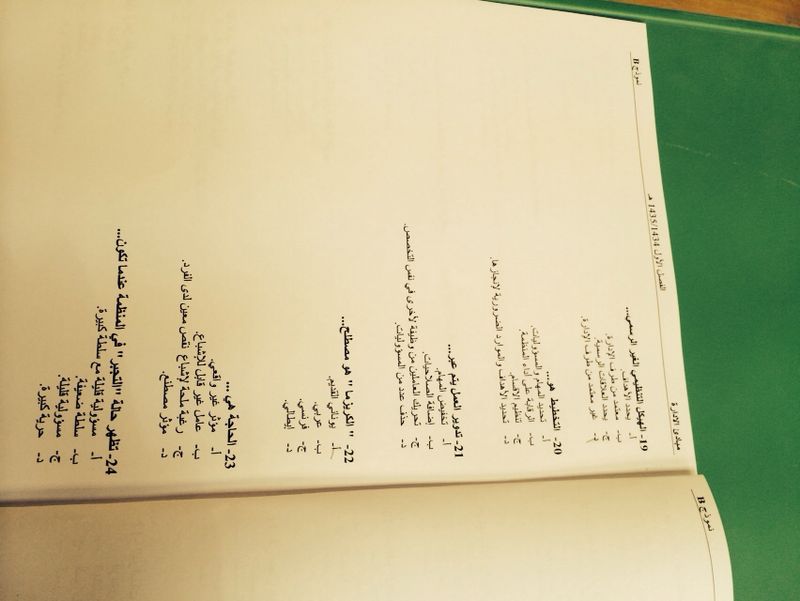 مبادئ الادارة
الفصل الأول 1435/1434 هـ
نموذج B
19- الهيكل التنظيمي الغير الرسمي...
أ. يحدد الأهداف.
ب. معتمد من طرف الإدارة.
ج. يحدد العلاقات الرسمية.
د. غير معتمد من طرف الإدارة.
20- التخطيط هو...
أ. تحديد المهام والمسؤوليات.
ب. الرقابة على أداء المنظمة.
ج. تنظيم الاقسام.
د. تحديد الأهداف والموارد الضرورية لإنجازها.
21- تدوير العمل يتم عبر...
أ. تخفيض المهام.
ب. إضافة الصلاحيات.
ج. تحويل العاملين من وظيفة لأخرى في نفس التخصص.
د. حذف عدد من المسؤوليات.
22- " الكريزما " هو مصطلح...
أ. يوناني القديم.
ب. عربي.
ج. فرنسي.
د. إيطالي.
23- الحاجة هي ...
أ. مؤثر غير واقعي.
ب. عامل غير قابل للإشباع.
ج. رغبة ملحة لإشباع نقص معين لدى الفرد.
د. مؤثر مصطنع.
24- تظهر حالة "التجبر" في المنظمة عندما تكون...
أ. مسؤولية قليلة مع سلطة كبيرة.
ب. سلطة ضعيفة.
ج. مسؤولية قليلة.
د. حرية كبيرة.
نموذج B